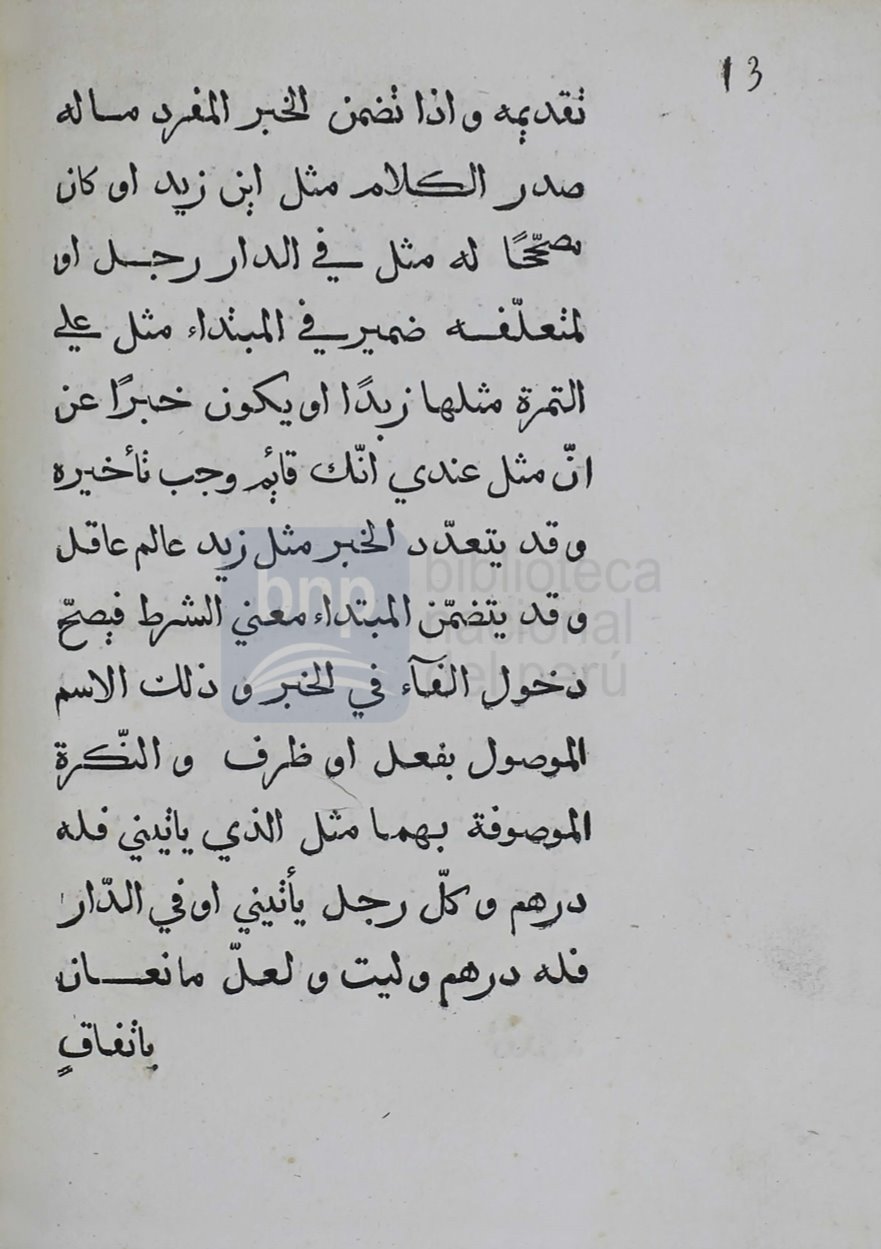 13
تقديمه و اذا تضمن الخبر المفرد ماله
صدر الكلام مثل اين زيد او كان
مصحّحًا له مثل في الدار رجل او
لمتعلّقه ضمير في المبتداء مثل علي
التمرة مثلها زبدًا او يكون خبرًا عن
انّ مثل عندي انّك قايم وجب تأخيره
و قد يتعدّد الخبر مثل زيد عالم عاقل
و قد يتضمّن المبتداء معني الشرط فيصحّ
دخول الفآء في الخبر و ذلك الاسم
الموصول بفعل او ظرف و النّكرة
الموصوفة بهما مثل الذي ياتيني فله
درهم و كلّ رجل يأتيني او في الدّار
فله درهم و ليت و لعلّ مانعان
باتفاقٍ
bnp biblioteca
nacional
del perú